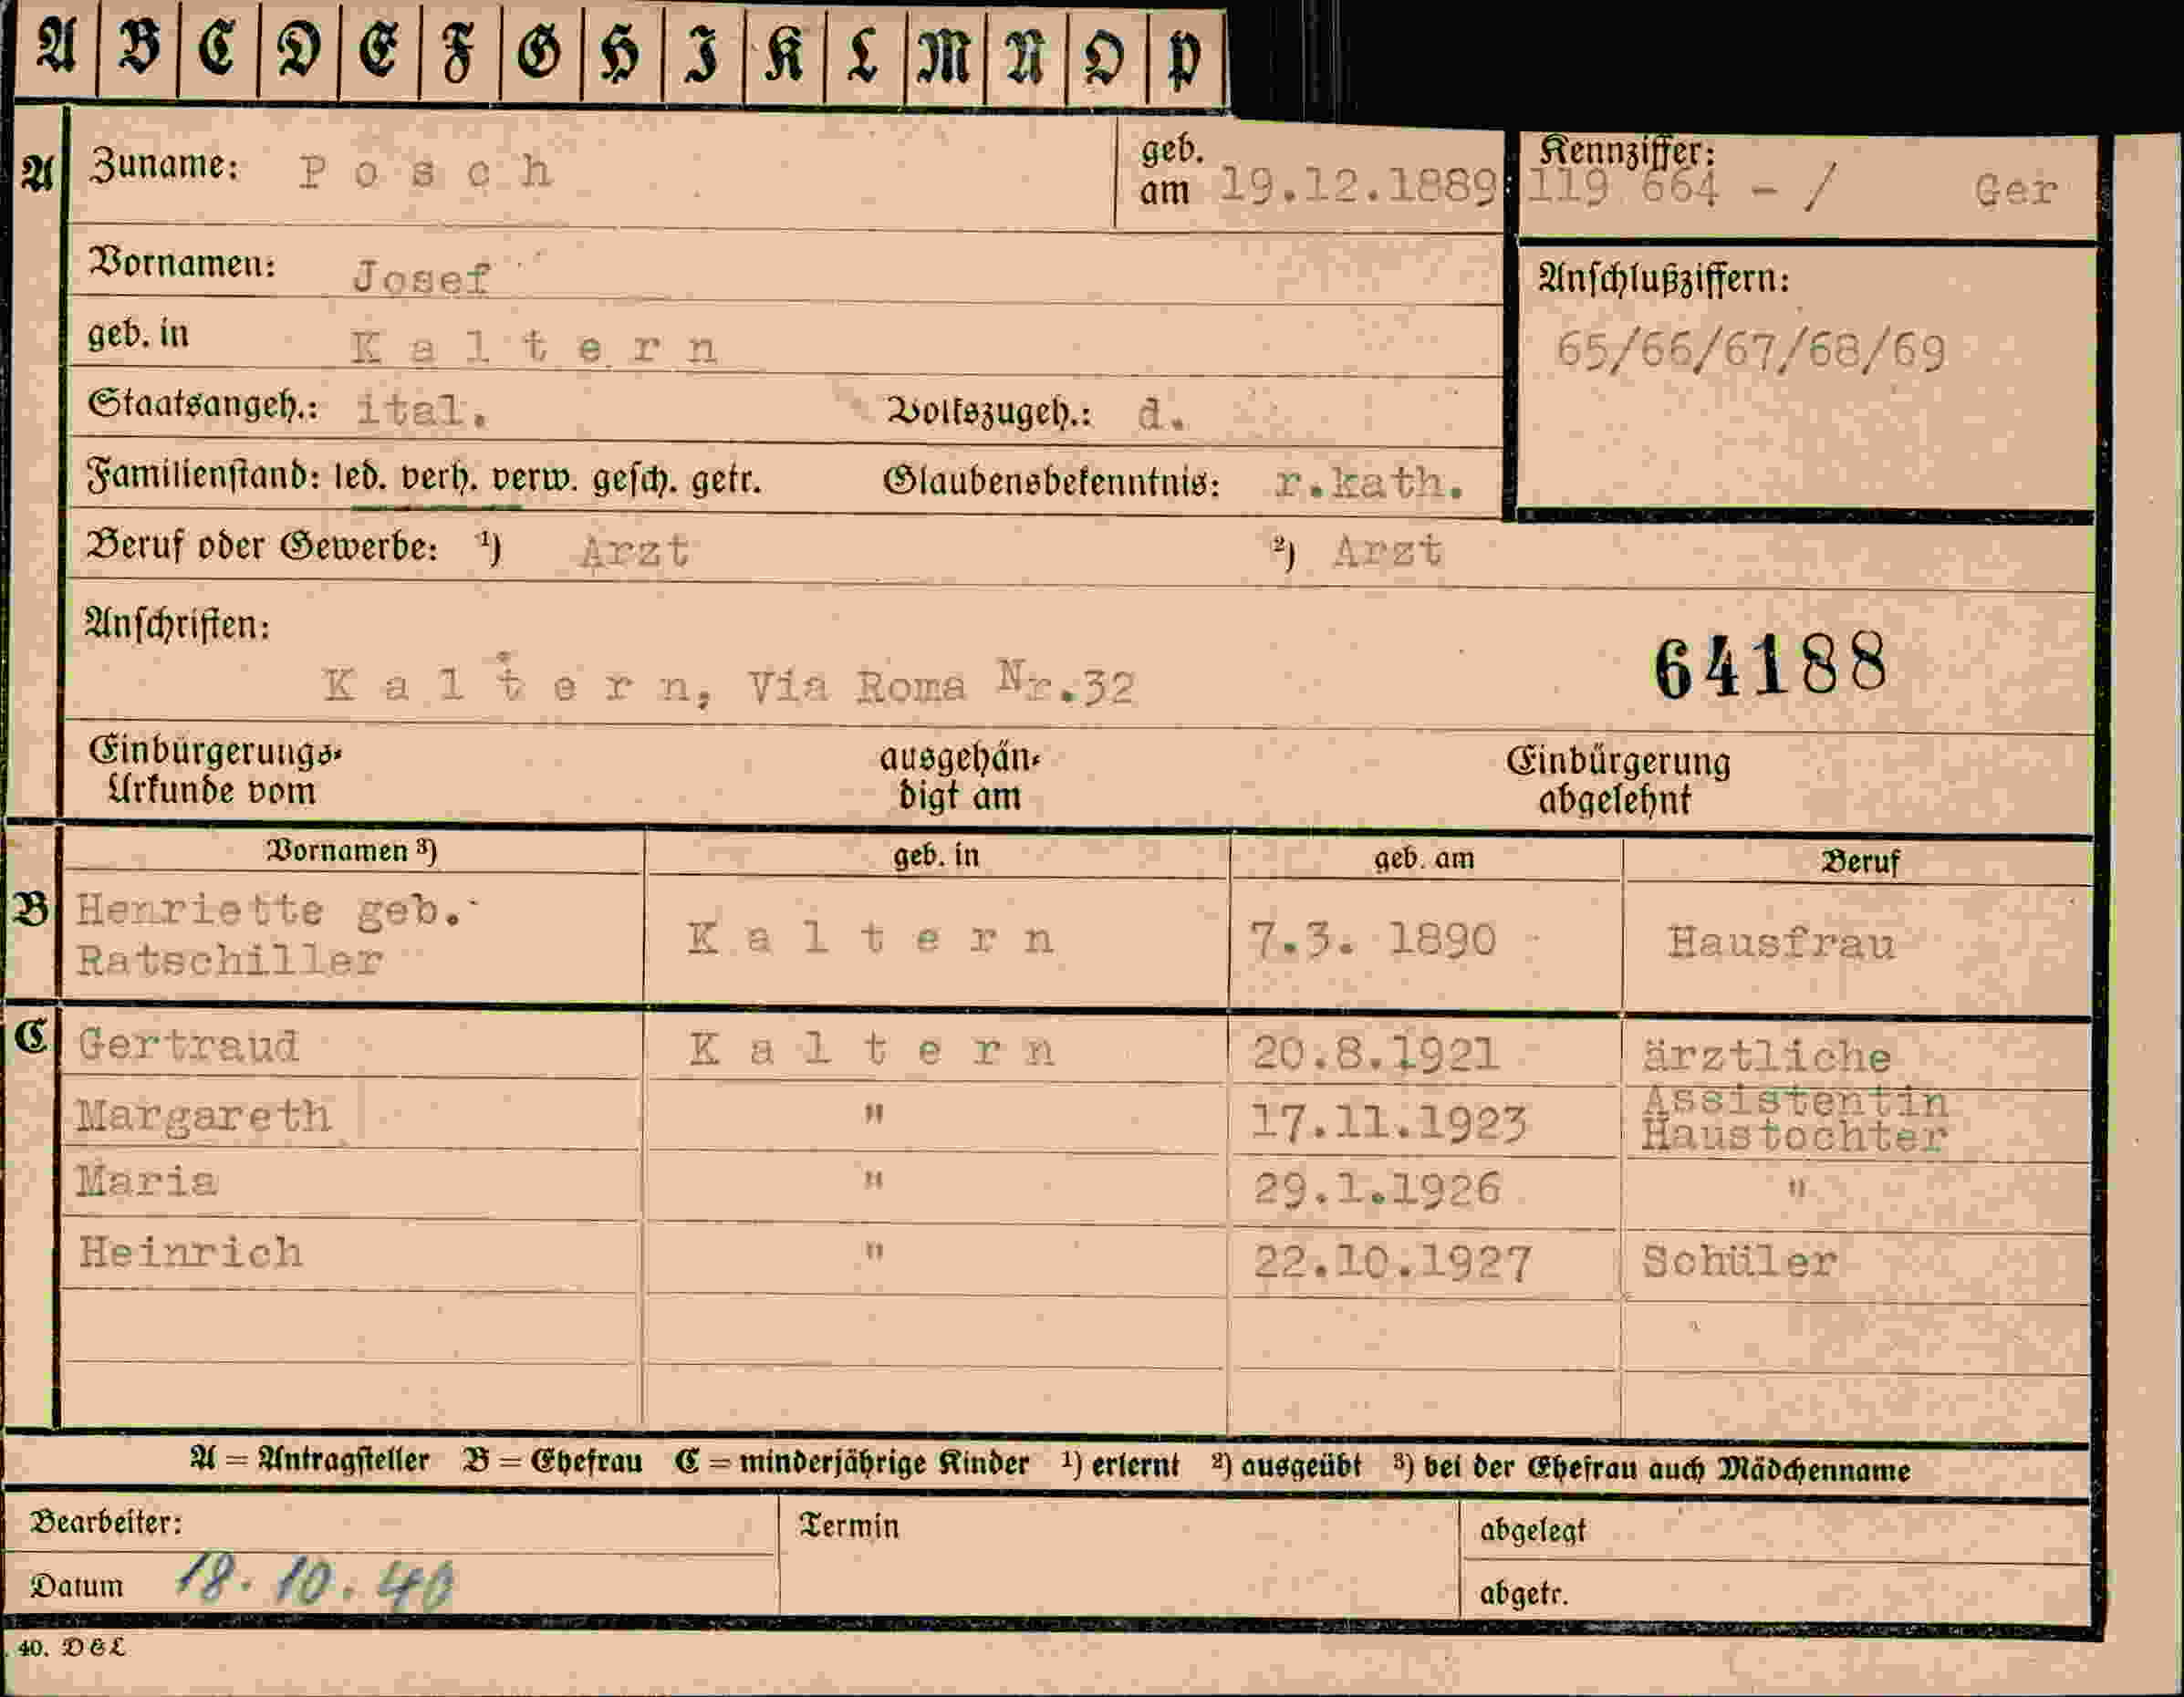 A B C D E F G H I K L M N O P
A Zuname: Posch geb. am 19.12.1889 Kennziffer: 119 664 - / Ger
Vornamen: Josef Anschlußziffern:
geb. in Kaltern 65/66/67/68/69
Staatsangeh.: ital. Volkszugeh.: d.
Familienstand: led. verh. verw. gesch. getr. Glaubensbekenntnis: r.kath.
Beruf oder Gewerbe: ¹) Arzt ²) Arzt
Anschriften: 64188
Kaltern, Via Roma Nr.32
Einbürgerungs- ausgehän- Einbürgerung
Urkunde vom digt am abgelehnt
Vornamen ³) geb. in geb. am Beruf
B Henriette geb. Ratschiller Kaltern 7.3. 1890 Hausfrau
C Gertraud Kaltern 20.8.1921 ärztliche Assistentin
Margareth " 17.11.1923 Haustochter
Maria " 29.1.1926 "
Heinrich " 22.10.1927 Schüler
A = Antragsteller B = Ehefrau C = minderjährige Kinder ¹) erlernt ²) ausgeübt ³) bei der Ehefrau auch Mädchenname
Bearbeiter: Termin abgelegt
Datum 18.10.40 abgetr.
40. DEL